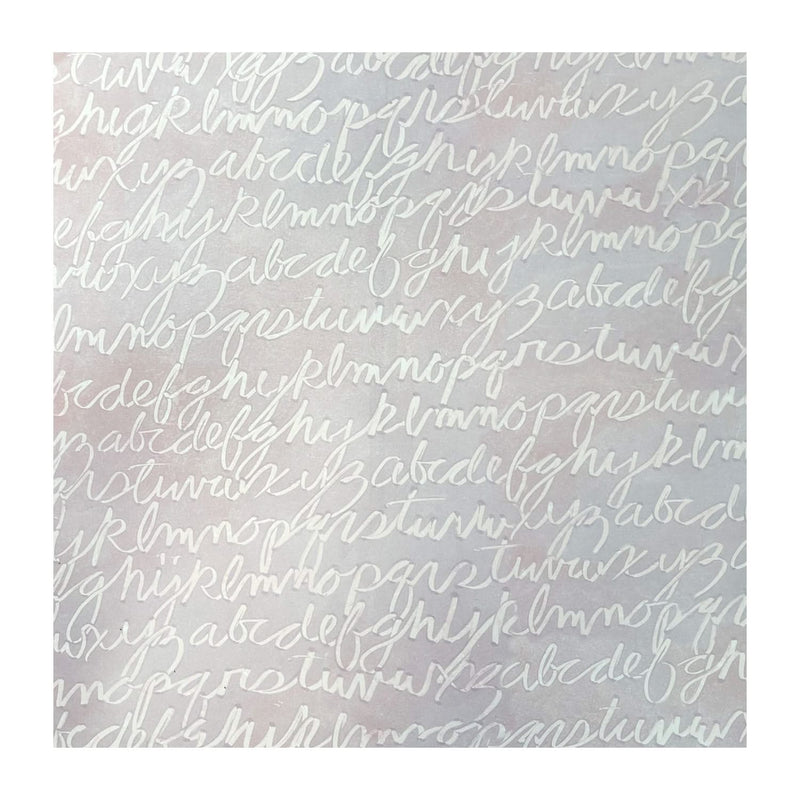 stuvwxyzabcdefghijk
ghijklmnopqrstuvwxyza
uvwxyzabcdefghijklmnopqr
efghijklmnopqrstuvwxyz
vwxyzabcdefghijklmnopq
lmnopqrstuvwxyzabcdefg
bcdefghijklmnopqrstuvwx
zabcdefghijklmnopqrstuvw
qrstuvwxyzabcdefghijklmn
ijklmnopqrstuvwxyzabcd
fghijklmnopqrstuvwxyz
uvwxyzabcdefghijklmnopq
mnopqrstuvwxyzabcdefgh
bcdefghijklmnopqrstuvwx